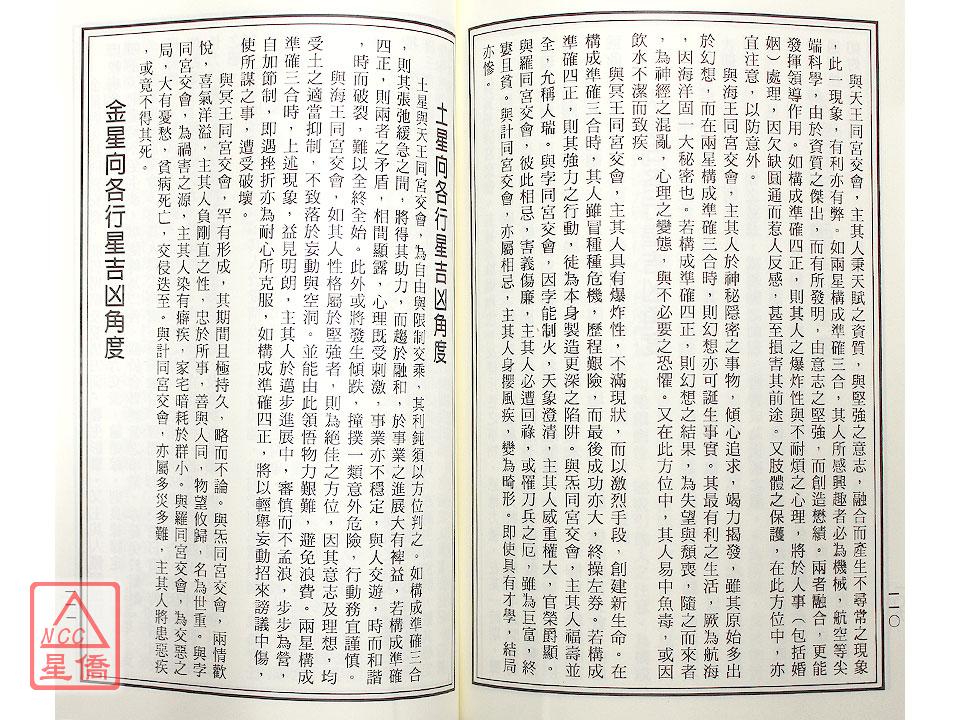 與天王同宮交會，主其人秉天賦之資質，與堅強之意志，融合而產生不尋常之現象
，此一現象，有利亦有弊。如兩星構成準確三合，其人所感興趣者必為機械，航空等尖
端科學，由於資質之傑出，而有所發明，由意志之堅強，而創造懋績。兩者融合，更能
發揮領導作用。如構成準確四正，則其人之爆炸性與不耐煩之心理，將於人事（包括婚
姻）處理，因欠缺圓通而惹人反感，甚至損害其前途。又肢體之保護，在此方位中，亦
宜注意，以防意外。
與海王同宮交會，主其人於神秘隱密之事物，傾心追求，竭力揭發，雖其原始多出
於幻想，而在兩星構成準確三合時，則幻想亦可誕生事實。其最有利之生活，厥為航海
，因海洋固一大秘密也。若構成準確四正，則幻想之結果，為失望與頹喪，隨之而來者
，為神經之混亂，心理之變態，與不必要之恐懼。又在此方位中，其人易中魚毒，或因
飲水不潔而致疾。
與冥王同宮交會，主其人具有爆炸性，不滿現狀，而以激烈手段，創建新生命。在
構成準確三合時，其人雖冒種種危機，歷程艱險，而最後成功亦大，終操左券。若構成
準確四正，則其強力之行動，徒為本身製造更深之陷阱。與炁同宮交會，主其人福壽並
全，允稱人瑞。與孛同宮交會，因孛能制火，天象澄清，主其人威重權大，官榮爵顯。
與羅同宮交會，彼此相忌，害義傷廉，主其人必遭回祿，或罹刀兵之厄，雖為巨富，終
窶且貧。與計同宮交會，亦屬相忌，主其人身攖風疾，變為畸形。即使具有才學，結局
亦慘。
一一〇
土星向各行星吉凶角度
土星與天王同宮交會，為自由與限制交乘，其利鈍須以方位判之。如構成準確三合
，則其張弛緩急之間，將得其助力，而趨於融和，於事業之進展大有裨益，若構成準確
四正，則兩者之矛盾，相間顯露，心理既受刺激，事業亦不穩定，與人交遊，時而和諧
，時而破裂，難以全終全始。此外或將發生傾跌，撞撲一類意外危險，行動務宜謹慎。
與海王同宮交會，如其人性格屬於堅強者，則為絕佳之方位，因其意志及理想，均
受土之適當抑制，不致落於妄動與空洞。並能由此領悟物力艱難，避免浪費。兩星構成
準確三合時，上述現象，益見明朗，主其人於邁步進展中，審慎而不孟浪，步步為營，
自加節制，即遇挫折亦為耐心所克服，如構成準確四正，將以輕舉妄動招來謗議中傷，
使所謀之事，遭受破壞。
與冥王同宮交會，罕有形成，其期間且極持久，略而不論。與炁同宮交會，兩情歡
悅，喜氣洋溢，主其人負剛直之性，忠於所事，善與人同，物望攸歸，名為世重。與孛
同宮交會，為禍害之源，主其人染有癖疾，家宅暗耗於群小。與羅同宮交會，為交惡之
局，大有憂愁，貧病死亡，交侵迭至。與計同宮交會，亦屬多災多難，主其人將患惡疾
，或竟不得其死。
金星向各行星吉凶角度
NCC
星僑